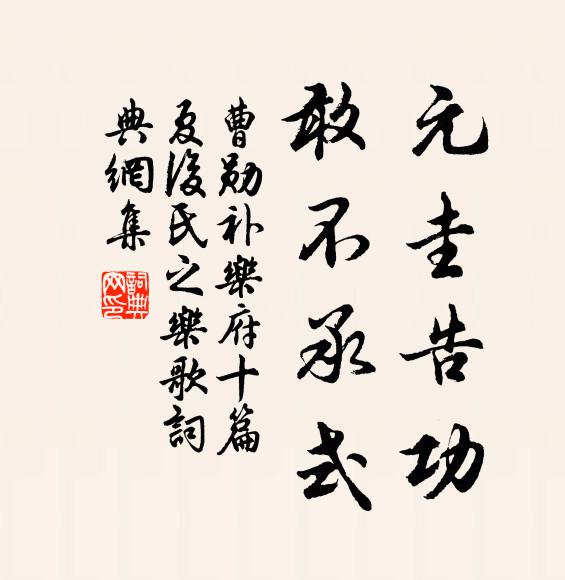 元圭告功
敢不承式
曹勋补樂府十篇
夏後氏之樂歌詞
典網集
詞典网印